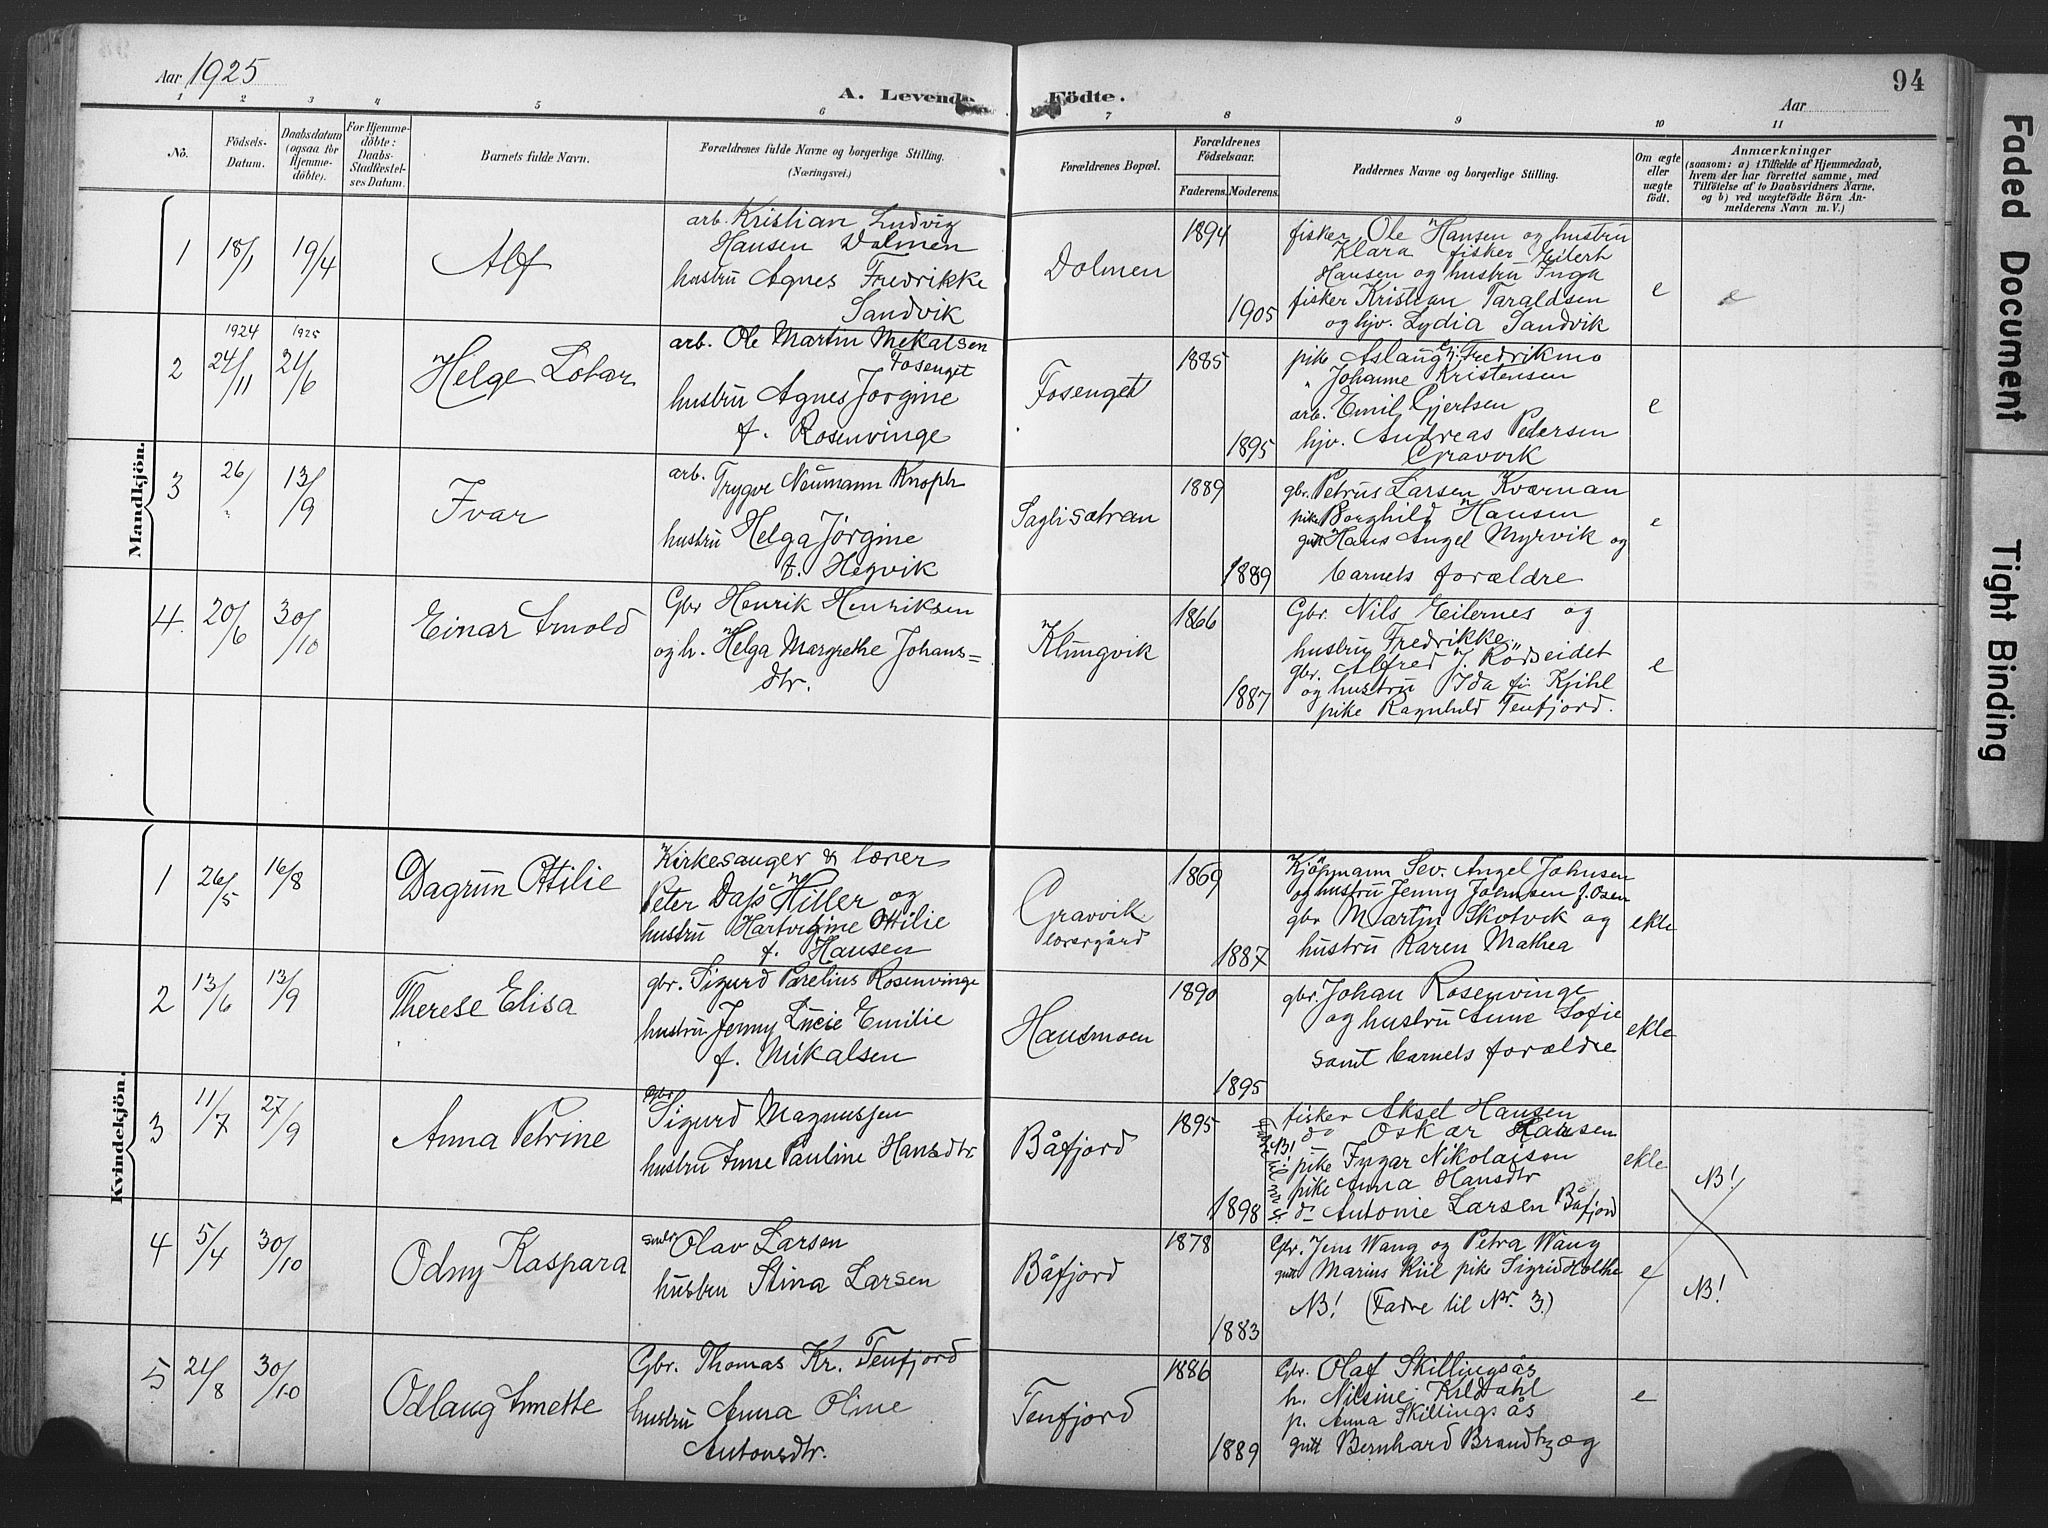 Aar 1925
A. Levende Födte.
Aar
94
1 2 3 4 5 6 7 8 9 10 11
No.
Födsels-
Datum.
Daabsdatum
(ogsaa for
Hjemme-
döbte).
For Hjemme-
döbte:
Daabs-
Stadfæstel-
ses Datum.
Barnets fulde Navn.
Forældrenes fulde Navne og borgerlige Stilling.
(Næringsvei.)
Forældrenes Bopæl.
Forældrenes
Födselsaar.
Faderens. Moderens.
Faddernes Navne og borgerlige Stilling.
Om ægte
eller
uægte
født.
Anmærkninger
(saasom: a) i Tilfælde af Hjemmedaab,
hvem der har forrettet samme, med
Tilföielse af to Daabsvidners Navne,
og b) ved uægtefödte Börn An-
melderens Navn m. V.)
Mandkjön.
1 18/1 19/4
Alf
arb. Kristian Ludvig
Hansen Dolmen
hustru Agnes Fredrikke
Sandvik
Dolmen
1894
1905
fisker Ole Hansen og hustru
Klara fisker Eilert
Hansen og hustru Inga
fisker Kristian Taraldsen
og hjv. Lydia Sandvik
e
e
2
1924
24/11
1925
21/6
Helge Lotar
arb. Ole Martin Mekalsen
Fosenget
hustru Agnes Jørgine
f. Rosenvinge
Fosenget
1885
1895
pike Aslaug Fredrikmo
" Johanne Kristensen
arb. Emil Gjertsen
hjv. Andreas Pedersen
Gravvik
e
3 26/ 13/9
Ivar
arb. Trygve Neumann Knoph
hustru Helga Jørgine
f. Hegvik
Saglisætran
1889
1889
gbr. Petrus Larsen Kvernan
pike Borghild Hansen
gutt Hans Angel Myrvik og
barnets forældre
e
4. 20/6 30/10
Einar Arnold
Gbr Henrik Henriksen
og h. Helga Margrethe Johans=
dtr.
Klungvik
1866
1887
Gbr. Nils Eilernes og
hustru Fredrikke
gbr. Alfred J. Rödseidet
og hustru Ida f. Kjihl
pike Ragnhild Tenfjord.
e
Kvindekjön.
1 26/5 16/8
Dagrun Ottilie
Kirkesanger & lærer
Peter Dass Hiller og
hustru Hartvigine Ottilie
f. Hansen
Gravvik
lærergård
1869
1887
Kjöpmann Sev. Angel Johnsen
og hustru Jenny Johnsen f. Osen
gbr Martin Skotvik og
hustru Karen Mathea
ekte
2 13/6 13/9
Therese Elisa
gbr. Sigurd Parelius Rosenvinge
hustru Jenny Lucie Emilie
f. Mikalsen
Hansmoen
1890
1895
gbr. Johan Rosenvinge
og hustru Anne Sofie
samt barnets forældre
ekte
3 11/7 27/9
Anna Petrine
Gbr
Sigurd Magnussen
hustru Anne Pauline Hansdtr.
Båfjord
1895
1898
fisker Aksel Hansen
do Oskar Hansen
pike Fygar Nikolaisen
pike Anna Hansdtr
do Antonie Larsen Båfjord
NB!
ekte
NB!
4 5/4 30/10
Odny Kaspara
Olav Larsen
hustru Stina Larsen
Båfjord
1878
1883
Gbr. Jens Wang og Petra Wang
gutt Marius Kiil pike Sigrid Holthe
NB! (Fadre til Nr. 3.)
e
NB!
5 21/8 30/10
Odlaug Anette
Gbr. Thomas Kr. Tenfjord
hustru Anna Oline
Antonsdtr.
Tenfjord
1886
1889
Gbr. Olaf Skillingsås
h. Nilsine Kildahl
p. Anna Skillingsås
gutt Bernhard Brandtzæg
e
Faded Document
Tight Binding